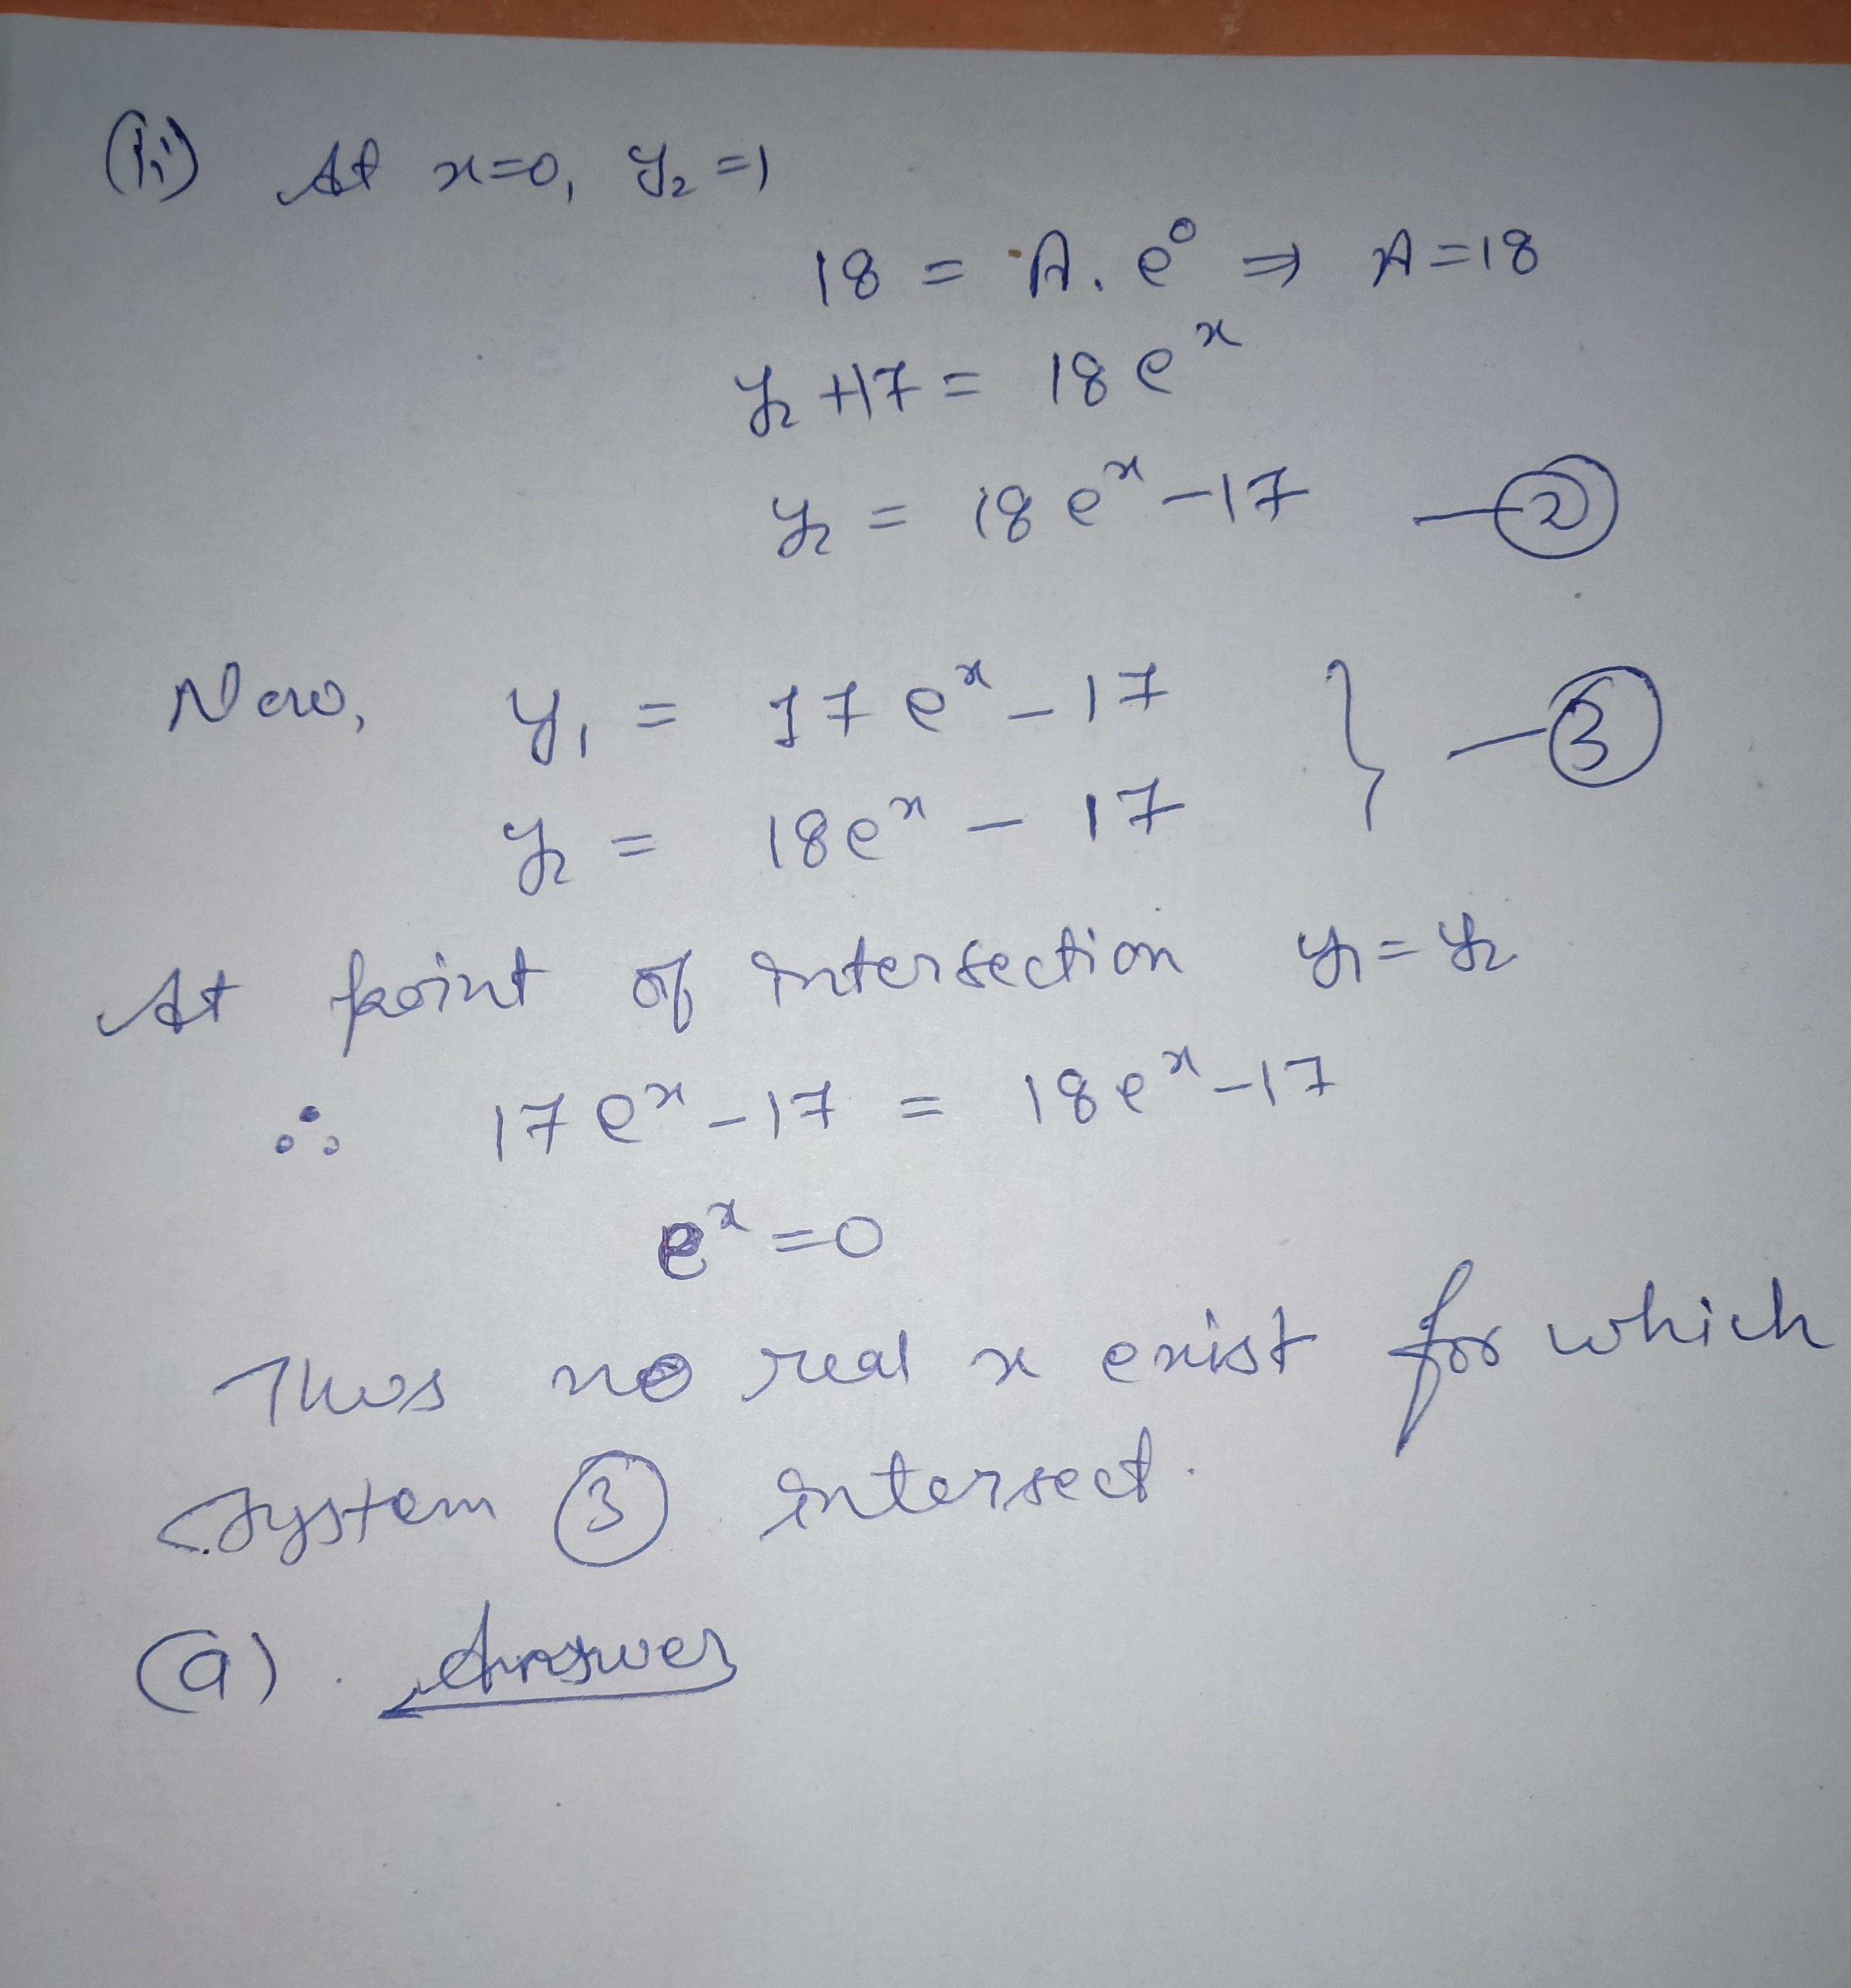 (ii) At x=0, y₂=1
18 = A. e⁰ ⇒ A=18
y₂+17 = 18eˣ
y₂ = 18eˣ-17 —②
Now, y₁ = 17eˣ-17 } —③
y₂ = 18eˣ - 17
At point of intersection y₁=y₂
∴ 17eˣ-17 = 18eˣ-17
eˣ=0
Thus no real x exist for which
system ③ intersect.
(a). Answer